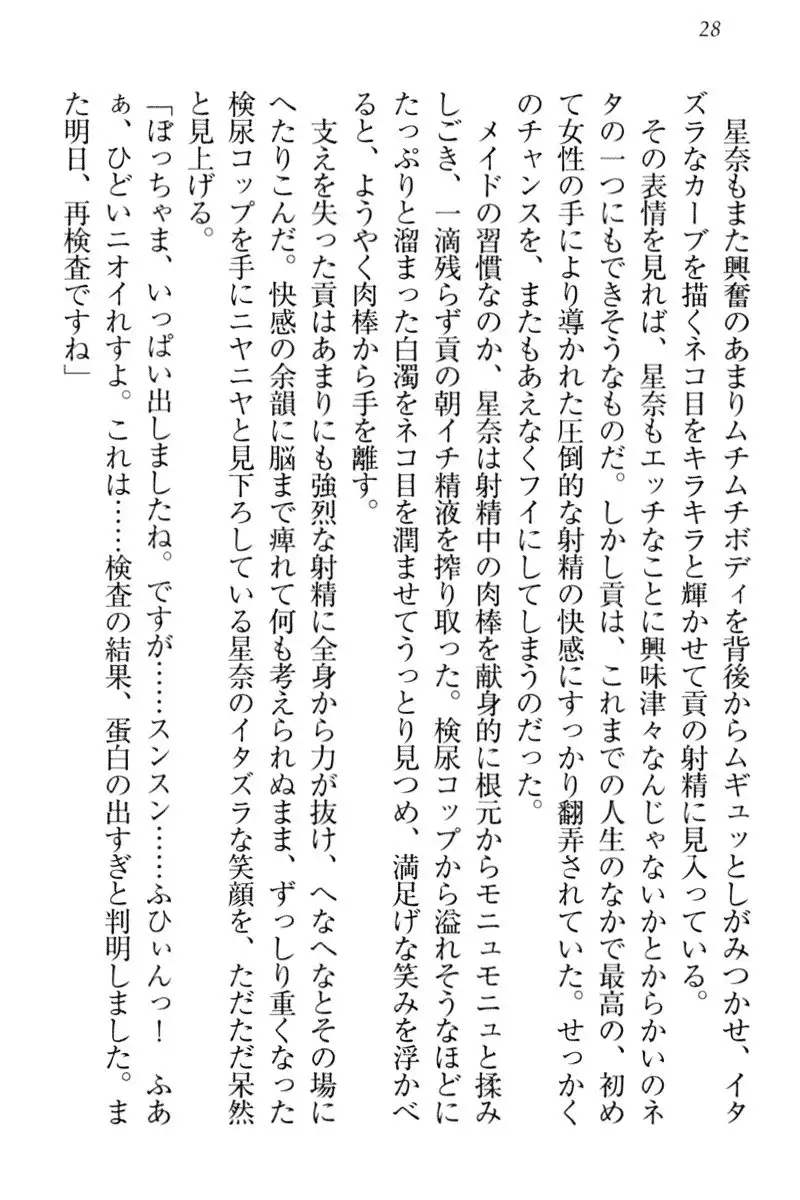 28
星奈もまた興奮のあまりムチムチボディを背後からムギュッとしがみつかせ、イタ
ズラなカーブを描くネコ目をキラキラと輝かせて貢の射精に見入っている。
その表情を見れば、星奈もエッチなことに興味津々なんじゃないかとからかいのネ
タの一つにもできそうなものだ。しかし貢は、これまでの人生のなかで最高の、初め
て女性の手により導かれた圧倒的な射精の快感にすっかり翻弄されていた。せっかく
のチャンスを、またもあえなくフイにしてしまうのだった。
メイドの習慣なのか、星奈は射精中の肉棒を献身的に根元からモニュモニュと揉み
しごき、一滴残らず貢の朝イチ精液を搾り取った。検尿コップから溢れそうなほどに
たっぷりと溜まった白濁をネコ目を潤ませてうっとり見つめ、満足げな笑みを浮かべ
ると、ようやく肉棒から手を離す。
支えを失った貢はあまりにも強烈な射精に全身から力が抜け、へなへなとその場に
へたりこんだ。快感の余韻に脳まで痺れて何も考えられぬまま、ずっしり重くなった
検尿コップを手にニヤニヤと見下ろしている星奈のイタズラな笑顔を、ただただ呆然
と見上げる。
「ぼっちゃま、いっぱい出しましたね。ですが……スンスン……ふひぃんっ！　ふあ
ぁ、ひどいニオイれすよ。これは……検査の結果、蛋白の出すぎと判明しました。ま
た明日、再検査ですね」